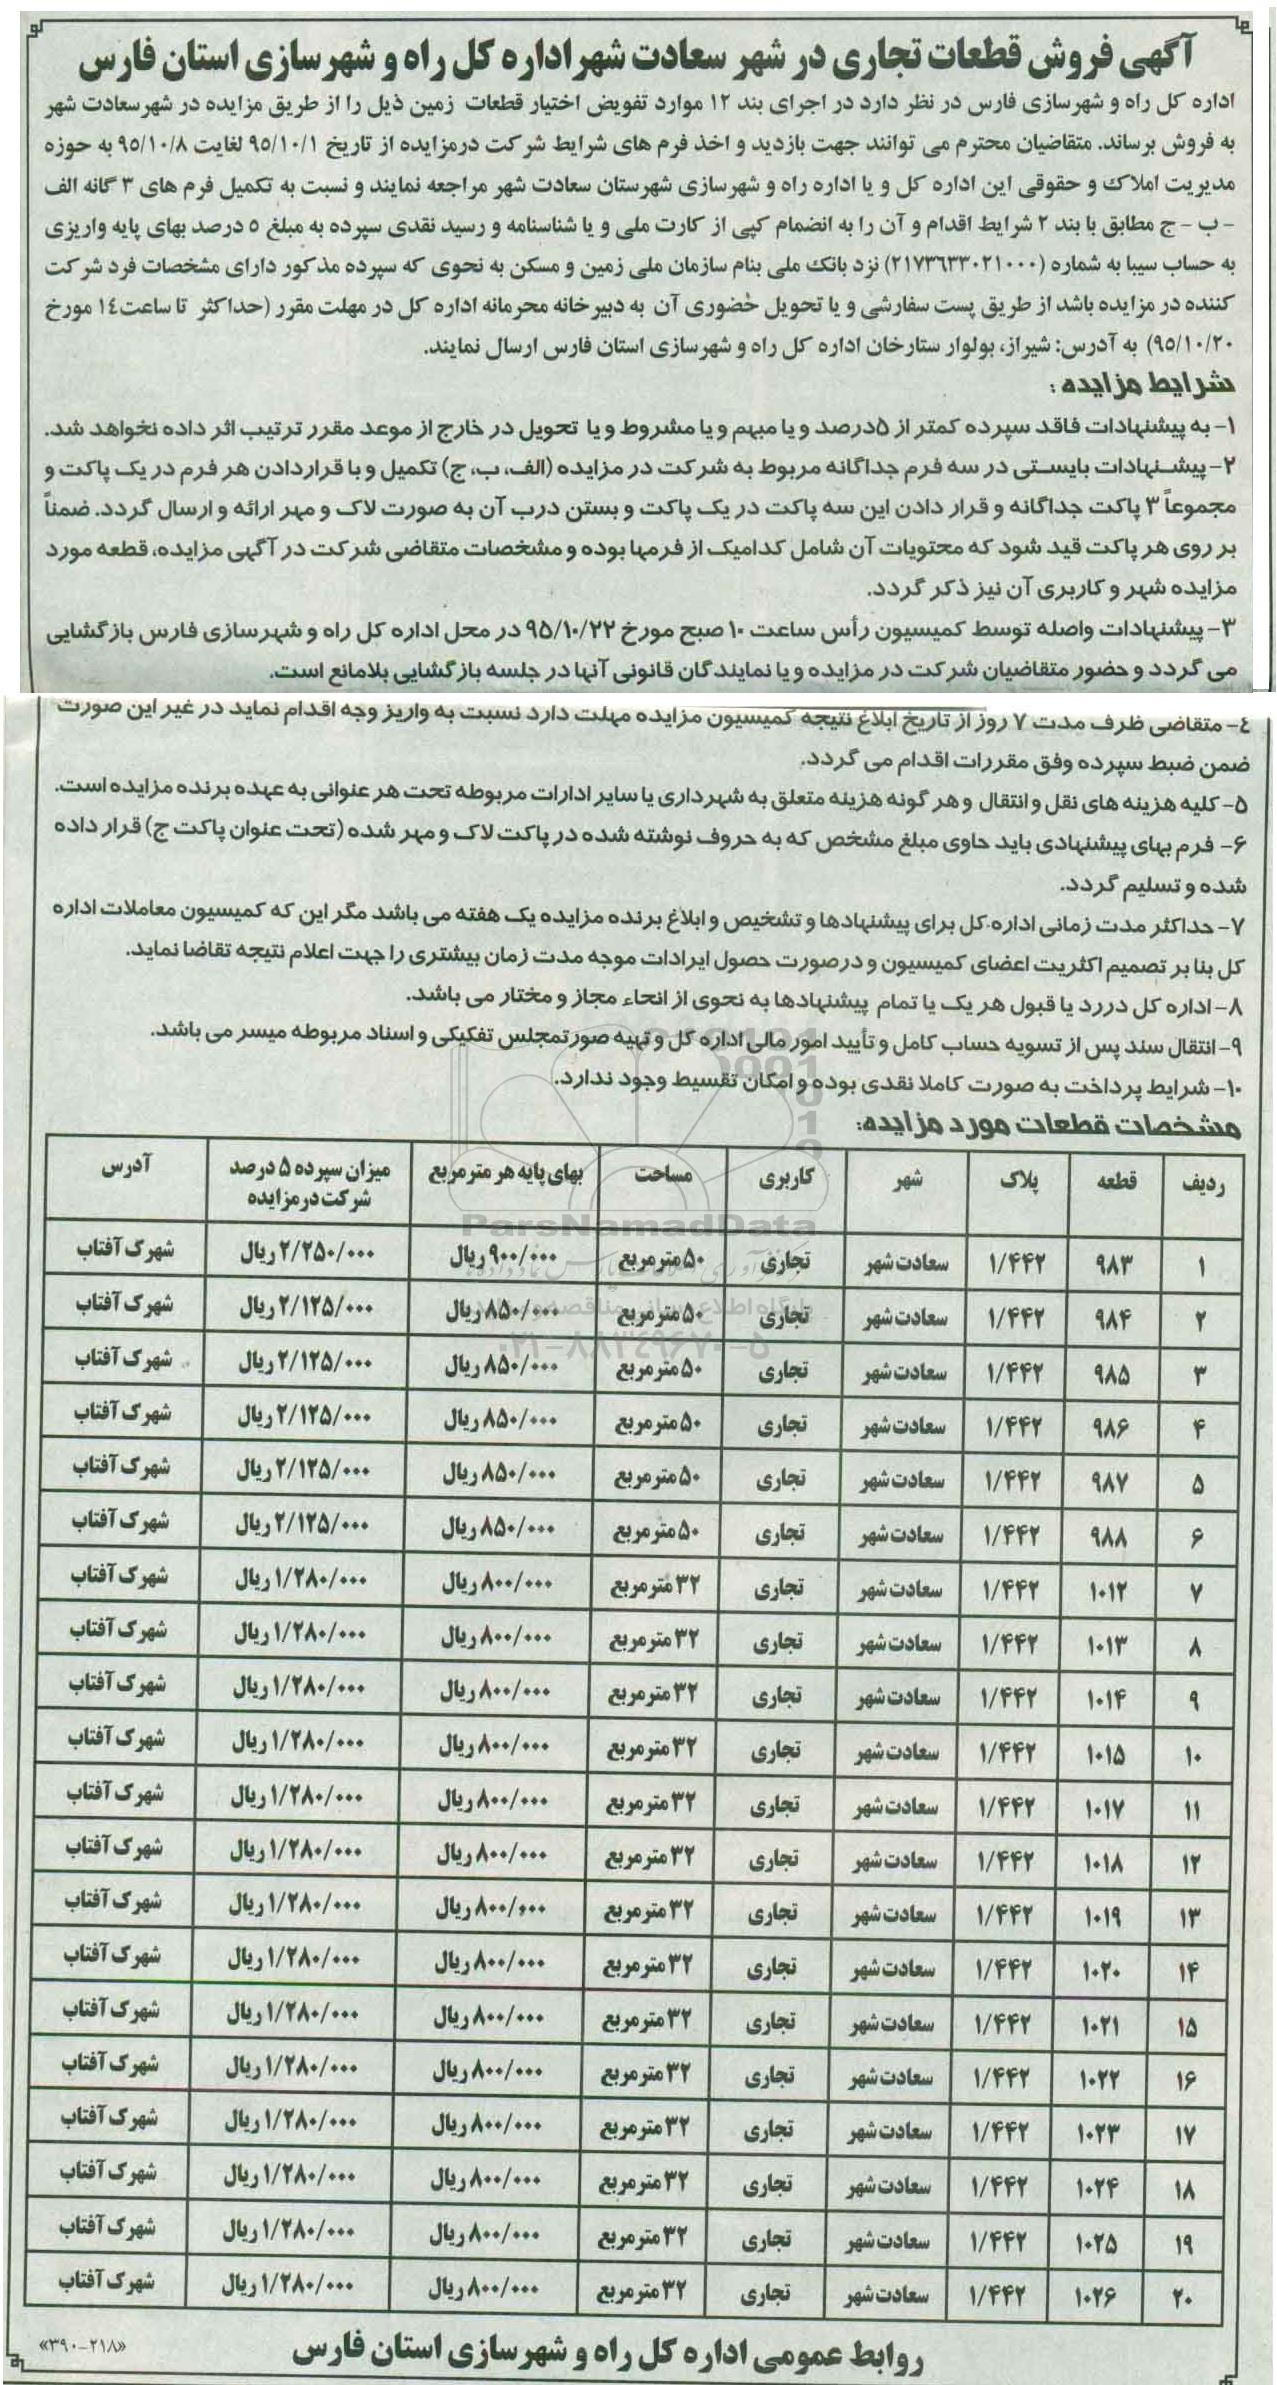 آگهی فروش قطعات تجاری در شهر سعادت شهر اداره کل راه و شهرسازی استان فارس
اداره کل راه و شهرسازی فارس در نظر دارد در اجرای بند ۱۲ موارد تفویض اختیار قطعات زمین ذیل را از طریق مزایده در شهرسعادت شهر
به فروش برساند. متقاضیان محترم می توانند جهت بازدید و اخذ فرم های شرایط شرکت درمزایده از تاریخ ۹۵/۱۰/۱ لغایت ۹۵/۱۰/۸ به حوزه
مدیریت املاک و حقوقی این اداره کل و یا اداره راه و شهرسازی شهرستان سعادت شهر مراجعه نمایند و نسبت به تکمیل فرم های ۳ گانه الف
- ب - ج مطابق با بند ۲ شرایط اقدام و آن را به انضمام کپی از کارت ملی و یا شناسنامه و رسید نقدی سپرده به مبلغ ۵ درصد بهای پایه واریزی
به حساب سیبا به شماره (۲۱۷۳۶۳۳۰۲۱۰۰۰) نزد بانک ملی بنام سازمان ملی زمین و مسکن به نحوی که سپرده مذکور دارای مشخصات فرد شرکت
کننده در مزایده باشد از طریق پست سفارشی و یا تحویل حضوری آن به دبیرخانه محرمانه اداره کل در مهلت مقرر (حداکثر تا ساعت ۱۴ مورخ
۹۵/۱۰/۲۰) به آدرس: شیراز، بولوار ستارخان اداره کل راه و شهرسازی استان فارس ارسال نمایند.
شرایط مزایده :
۱- به پیشنهادات فاقد سپرده کمتر از ۵درصد و یا مبهم و یا مشروط و یا تحویل در خارج از موعد مقرر ترتیب اثر داده نخواهد شد.
۲- پیشنهادات بایستی در سه فرم جداگانه مربوط به شرکت در مزایده (الف، ب، ج) تکمیل و با قراردادن هر فرم در یک پاکت و
مجموعاً ۳ پاکت جداگانه و قرار دادن این سه پاکت در یک پاکت و بستن درب آن به صورت لاک و مهر ارائه و ارسال گردد. ضمناً
بر روی هر پاکت قید شود که محتویات آن شامل کدامیک از فرمها بوده و مشخصات متقاضی شرکت در آگهی مزایده، قطعه مورد
مزایده شهر و کاربری آن نیز ذکر گردد.
۳- پیشنهادات واصله توسط کمیسیون رأس ساعت ۱۰ صبح مورخ ۹۵/۱۰/۲۲ در محل اداره کل راه و شهرسازی فارس بازگشایی
می گردد و حضور متقاضیان شرکت در مزایده و یا نمایندگان قانونی آنها در جلسه بازگشایی بلامانع است.
۴- متقاضی ظرف مدت ۷ روز از تاریخ ابلاغ نتیجه کمیسیون مزایده مهلت دارد نسبت به واریز وجه اقدام نماید در غیر این صورت
ضمن ضبط سپرده وفق مقررات اقدام می گردد.
۵- کلیه هزینه های نقل و انتقال و هر گونه هزینه متعلق به شهرداری یا سایر ادارات مربوطه تحت هر عنوانی به عهده برنده مزایده است.
۶- فرم بهای پیشنهادی باید حاوی مبلغ مشخص که به حروف نوشته شده در پاکت لاک و مهر شده (تحت عنوان پاکت ج) قرار داده
شده و تسلیم گردد.
۷- حداکثر مدت زمانی اداره کل برای پیشنهادها و تشخیص و ابلاغ برنده مزایده یک هفته می باشد مگر این که کمیسیون معاملات اداره
کل بنا بر تصمیم اکثریت اعضای کمیسیون و درصورت حصول ایرادات موجه مدت زمان بیشتری را جهت اعلام نتیجه تقاضا نماید.
۸- اداره کل دررد یا قبول هر یک یا تمام پیشنهادها به نحوی از انحاء مجاز و مختار می باشد.
۹- انتقال سند پس از تسویه حساب کامل و تأیید امور مالی اداره کل و تهیه صورتمجلس تفکیکی و اسناد مربوطه میسر می باشد.
۱۰- شرایط پرداخت به صورت کاملا نقدی بوده و امکان تقسیط وجود ندارد.
مشخصات قطعات مورد مزایده:
ردیف قطعه پلاک شهر کاربری مساحت بهای پایه هر مترمربع میزان سپرده ۵ درصد شرکت درمزایده آدرس
۱ ۹۸۳ ۱/۴۴۲ سعادت شهر تجاری ۵۰ مترمربع ۹۰۰/۰۰۰ ریال ۲/۲۵۰/۰۰۰ ریال شهرک آفتاب
۲ ۹۸۴ ۱/۴۴۲ سعادت شهر تجاری ۵۰ مترمربع ۸۵۰/۰۰۰ ریال ۲/۱۲۵/۰۰۰ ریال شهرک آفتاب
۳ ۹۸۵ ۱/۴۴۲ سعادت شهر تجاری ۵۰ مترمربع ۸۵۰/۰۰۰ ریال ۲/۱۲۵/۰۰۰ ریال شهرک آفتاب
۴ ۹۸۶ ۱/۴۴۲ سعادت شهر تجاری ۵۰ مترمربع ۸۵۰/۰۰۰ ریال ۲/۱۲۵/۰۰۰ ریال شهرک آفتاب
۵ ۹۸۷ ۱/۴۴۲ سعادت شهر تجاری ۵۰ مترمربع ۸۵۰/۰۰۰ ریال ۲/۱۲۵/۰۰۰ ریال شهرک آفتاب
۶ ۹۸۸ ۱/۴۴۲ سعادت شهر تجاری ۵۰ مترمربع ۸۵۰/۰۰۰ ریال ۲/۱۲۵/۰۰۰ ریال شهرک آفتاب
۷ ۱۰۱۲ ۱/۴۴۲ سعادت شهر تجاری ۳۲ مترمربع ۸۰۰/۰۰۰ ریال ۱/۲۸۰/۰۰۰ ریال شهرک آفتاب
۸ ۱۰۱۳ ۱/۴۴۲ سعادت شهر تجاری ۳۲ مترمربع ۸۰۰/۰۰۰ ریال ۱/۲۸۰/۰۰۰ ریال شهرک آفتاب
۹ ۱۰۱۴ ۱/۴۴۲ سعادت شهر تجاری ۳۲ مترمربع ۸۰۰/۰۰۰ ریال ۱/۲۸۰/۰۰۰ ریال شهرک آفتاب
۱۰ ۱۰۱۵ ۱/۴۴۲ سعادت شهر تجاری ۳۲ مترمربع ۸۰۰/۰۰۰ ریال ۱/۲۸۰/۰۰۰ ریال شهرک آفتاب
۱۱ ۱۰۱۷ ۱/۴۴۲ سعادت شهر تجاری ۳۲ مترمربع ۸۰۰/۰۰۰ ریال ۱/۲۸۰/۰۰۰ ریال شهرک آفتاب
۱۲ ۱۰۱۸ ۱/۴۴۲ سعادت شهر تجاری ۳۲ مترمربع ۸۰۰/۰۰۰ ریال ۱/۲۸۰/۰۰۰ ریال شهرک آفتاب
۱۳ ۱۰۱۹ ۱/۴۴۲ سعادت شهر تجاری ۳۲ مترمربع ۸۰۰/۰۰۰ ریال ۱/۲۸۰/۰۰۰ ریال شهرک آفتاب
۱۴ ۱۰۲۰ ۱/۴۴۲ سعادت شهر تجاری ۳۲ مترمربع ۸۰۰/۰۰۰ ریال ۱/۲۸۰/۰۰۰ ریال شهرک آفتاب
۱۵ ۱۰۲۱ ۱/۴۴۲ سعادت شهر تجاری ۳۲ مترمربع ۸۰۰/۰۰۰ ریال ۱/۲۸۰/۰۰۰ ریال شهرک آفتاب
۱۶ ۱۰۲۲ ۱/۴۴۲ سعادت شهر تجاری ۳۲ مترمربع ۸۰۰/۰۰۰ ریال ۱/۲۸۰/۰۰۰ ریال شهرک آفتاب
۱۷ ۱۰۲۳ ۱/۴۴۲ سعادت شهر تجاری ۳۲ مترمربع ۸۰۰/۰۰۰ ریال ۱/۲۸۰/۰۰۰ ریال شهرک آفتاب
۱۸ ۱۰۲۴ ۱/۴۴۲ سعادت شهر تجاری ۳۲ مترمربع ۸۰۰/۰۰۰ ریال ۱/۲۸۰/۰۰۰ ریال شهرک آفتاب
۱۹ ۱۰۲۵ ۱/۴۴۲ سعادت شهر تجاری ۳۲ مترمربع ۸۰۰/۰۰۰ ریال ۱/۲۸۰/۰۰۰ ریال شهرک آفتاب
۲۰ ۱۰۲۶ ۱/۴۴۲ سعادت شهر تجاری ۳۲ مترمربع ۸۰۰/۰۰۰ ریال ۱/۲۸۰/۰۰۰ ریال شهرک آفتاب
روابط عمومی اداره کل راه و شهرسازی استان فارس
«۳۹۰-۲۱۸»
ParsNamadData
۰۲۱-۸۸۳۴۹۶۷۰-۵